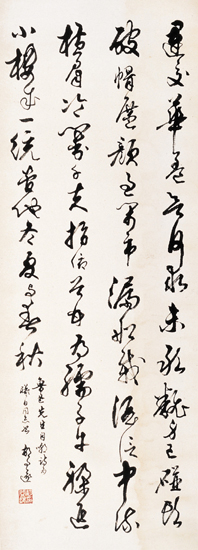 運交華蓋欲何求未敢翻身已碰頭
破帽遮顏過鬧市漏船載酒泛中流
橫眉冷對千夫指俯首甘為孺子牛躲進
小樓成一統管他冬夏與春秋
魯迅先生自嘲詩